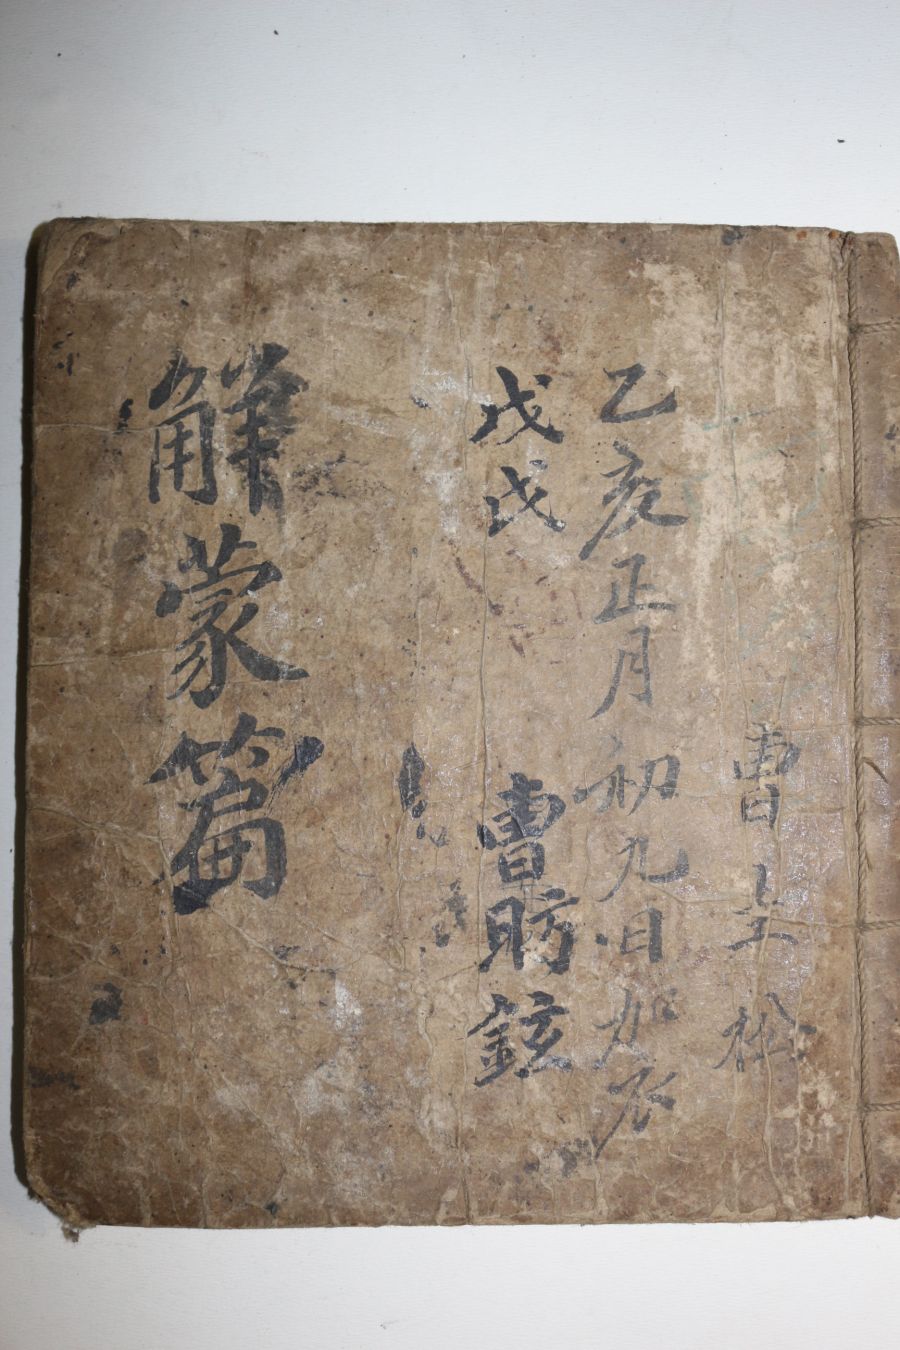 曺圭松
乙亥正月初九日加衣
戊戌 曺昉鉉
解蒙篇